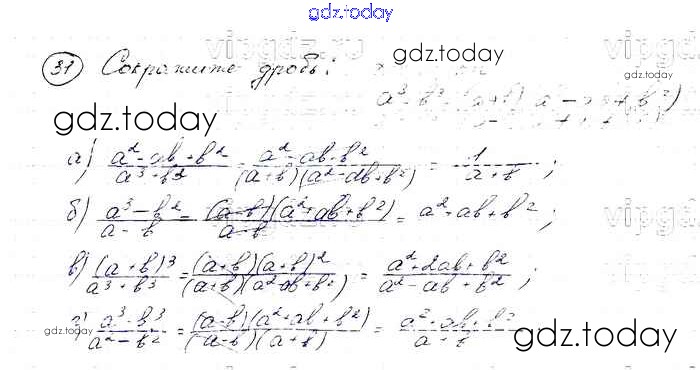 gdz.today
vipgdz.ru
gdz.today
31 Сократите дробь:
gdz.today
а) (a² - ab + b²)/(a³ + b²) = (a² - ab + b²)/((a+b)(a² - ab + b²)) = 1/(a + b);
б) (a³ - b²)/(a - b) = ((a-b)(a² + ab + b²))/(a-b) = a² + ab + b²;
в) (a + b)³/(a³ + b³) = ((a+b)(a+b)²)/((a+b)(a² - ab + b²)) = (a² + 2ab + b²)/(a² - ab + b²);
г) (a³ - b³)/(a² - b²) = ((a-b)(a² + ab + b²))/((a-b)(a+b)) = (a² + ab + b²)/(a + b)
gdz.today
gdz.today